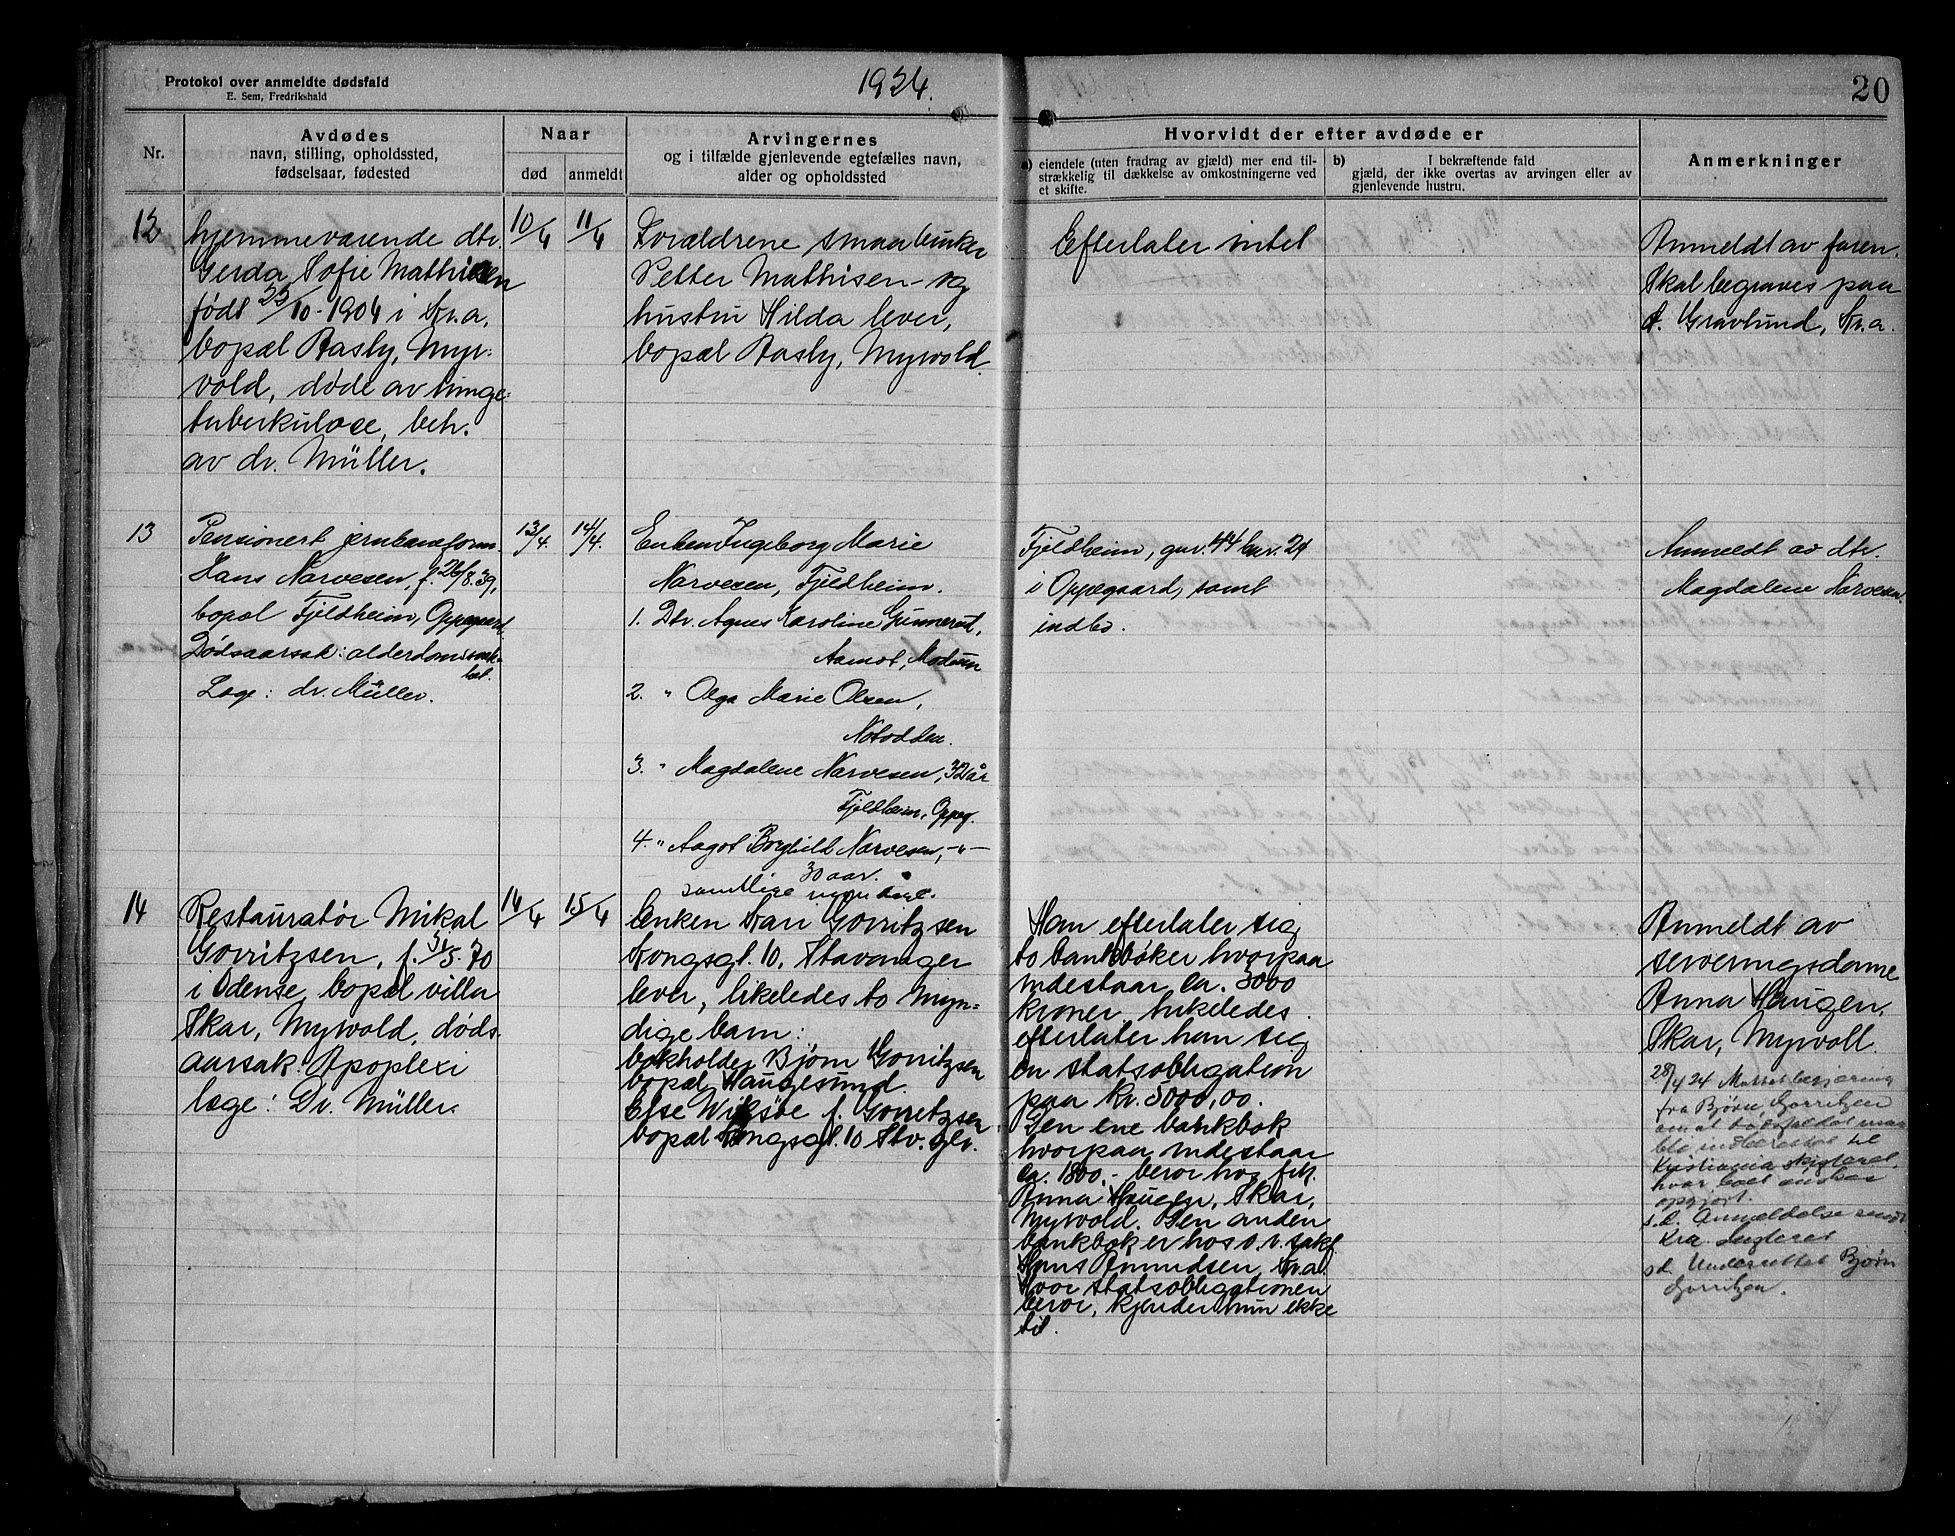 Protokol over anmeldte dødsfald
E. Sem, Fredrikshald
1924.
20
Nr.
Avdødes
navn, stilling, opholdssted,
fødselsaar, fødested
Naar
død
anmeldt
Arvingernes
og i tilfælde gjenlevende egtefælles navn,
alder og opholdssted
Hvorvidt der efter avdøde er
a) eiendele (uten fradrag av gjæld) mer end til-
strækkelig til dækkelse av omkostningerne ved
et skifte.
b) I bekræftende fald
gjæld, der ikke overtas av arvingen eller av
gjenlevende hustru.
Anmerkninger
12
hjemmeværende dtr.
Gerda Sofie Mathisen
født /10-1904 i Kr.a.
bopæl Aasly, Myr-
vold, døde av lunge-
tuberkulose, beh.
av dr. Müller.
10/4
11/4
Forældrene smaabruker
Petter Mathisen og
hustru Hilda lever,
bopæl Aasly, Myrvold.
Efterlater intet
Anmeldt av faren.
Skal begraves paa
Gravlund, Kr.a.
13
Pensionert jernbaneform.
Hans Narvesen, f. 26/8.39,
bopæl Fjeldheim, Oppegaard.
Dødsaarsak: alderdomssvak-
het.
Læge: dr. Müller.
13/4.
14/4.
Enken Ingeborg Marie
Narvesen, Fjeldheim.
1. Dtr. Agnes Karoline Gunnerud,
Aamot, Modum
2. " Olga Marie Olsen,
Notodden.
3. " Magdalene Narvesen, 32 år
Fjeldheim, Oppeg.
4. " Aagot Borghild Narvesen, -"-
30 aar.
samtlige myndige.
Fjeldheim, gnr. 44 bnr. 24
i Oppegaard, samt
indbo.
Anmeldt av dtr.
Magdalene Narvesen.
14
Restauratør Mikal
Gorritzsen, f. 31/5.70
i Odense, bopæl villa
Skar, Myrvold, døds-
aarsak: Apoplexi
læge: Dr. Müller.
14/4
15/4
Enken Kari Gorritzsen
Kongsgt. 10, Stavanger
lever, likeledes to myn-
dige barn:
bokholder Bjørn Gorritzsen
bopæl Haugesund.
Else Wiksøe f. Gorritzsen
bopæl Kongsgt. 10 Stv.gr.
Han efterlater sig
to bankbøker hvorpaa
indestaar ca. 3000
kroner, likeledes
efterlater han sig
en statsobligation
paa kr. 5000,00.
Den ene bankbok
hvorpaa indestaar
ca. 1800,- beror hos frk.
Anna Haugen, Skar,
Myrvold. Den anden
bankbok er hos o.r. sakf.
Hans Amundsen, Kr.a.
Hvor statsobligationen
beror, kjender hun ikke
til.
Anmeldt av
serveringsdame
Anna Haugen,
Skar, Myrvoll.
28/4 24 begjæring
fra Bjørn Gorritzen
om at dødsfaldet maa
bli indberettet til
Kristiania skifteret,
hvor boet ønskes
opgjort.
s.d. Anmeldelse sendt
Kra. skifteret
s.d. Underrettet Bjørn
Gorritzen.